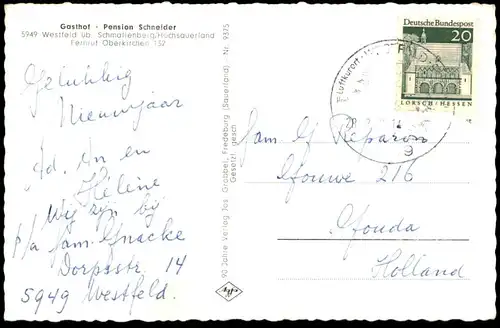 Gasthof - Pension Schneider
5949 Westfeld üb. Schmallenberg/Hochsauerland
Fernruf Oberkirchen 152
Gelukkig
Nieuwjaar
Ad. An en
Hélène
Wij zijn bij
p/a fam. Gnacke
Dorpsstr. 14
5949 Westfeld.
90 Jahre Verlag Jos. Grobbel, Fredeburg (Sauerland). Nr. 9375
Gesetzl. gesch.
Agfa
Luftkurort
Deutsche Bundespost
20
LORSCH/HESSEN
fam. G Reparon
Gouwe 216
Gouda
Holland